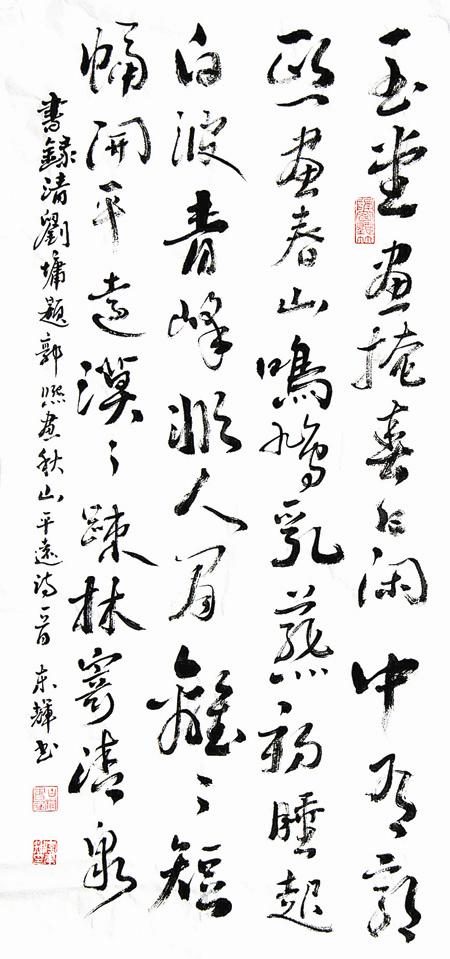 玉堂畫掩春日闲中有郭
熙畫春山鳴鳩乳燕初睡起
白波青峰非人間離々短
幅開平遠漠々疎林寄清泉
書錄清劉墉題郭熙畫秋山平遠詩一首 東輝书